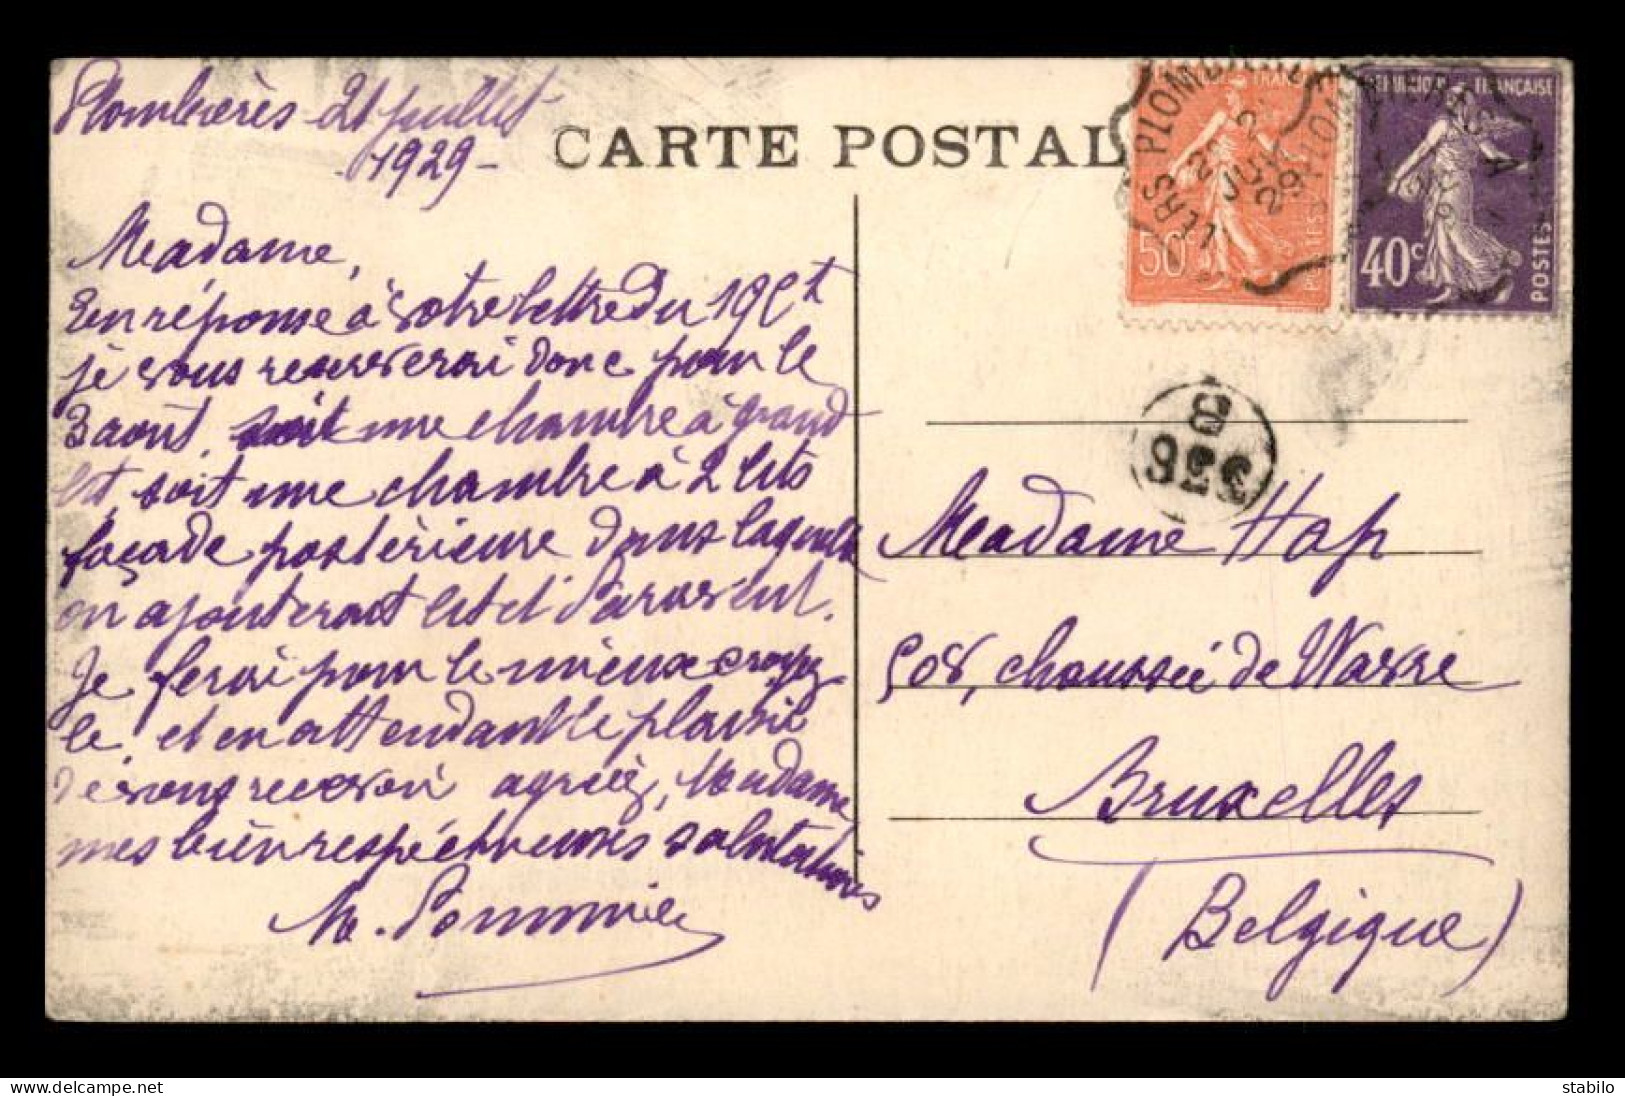 Plombières 21 juillet
1929 -
CARTE POSTALE
Madame,
En réponse à votre lettre du 19 ct
je vous reserverai donc pour le
3 août, soit une chambre à grand
lit, soit une chambre à 2 lits
façade postérieure dans laquelle
on ajouterait lit et Paravent.
Je ferai pour le mieux croyez
le, et en attendant le plaisir
de vous recevoir agréez, Madame
mes bien respectueuses salutations
M. Pommier
REPUBLIQUE FRANÇAISE
50c
POSTES
40c
POSTES
PLOMBIERES
JUIL
29
B
326
Madame Hap
508, chaussée de Wavre
Bruxelles
(Belgique)
stabilo